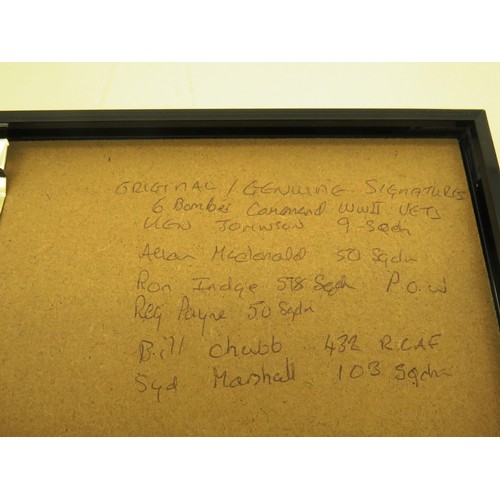 ORIGINAL / GENUINE SIGNATURES
6 Bomber Command WWII VETS
KEN JOHNSON 9 Sqdn
Allan McDonald 50 Sqdn
Ron Indge 578 Sqdn P.O.W
Reg Payne 50 Sqdn
Bill Chubb 432 R.C.A.F
Syd Marshall 103 Sqdn